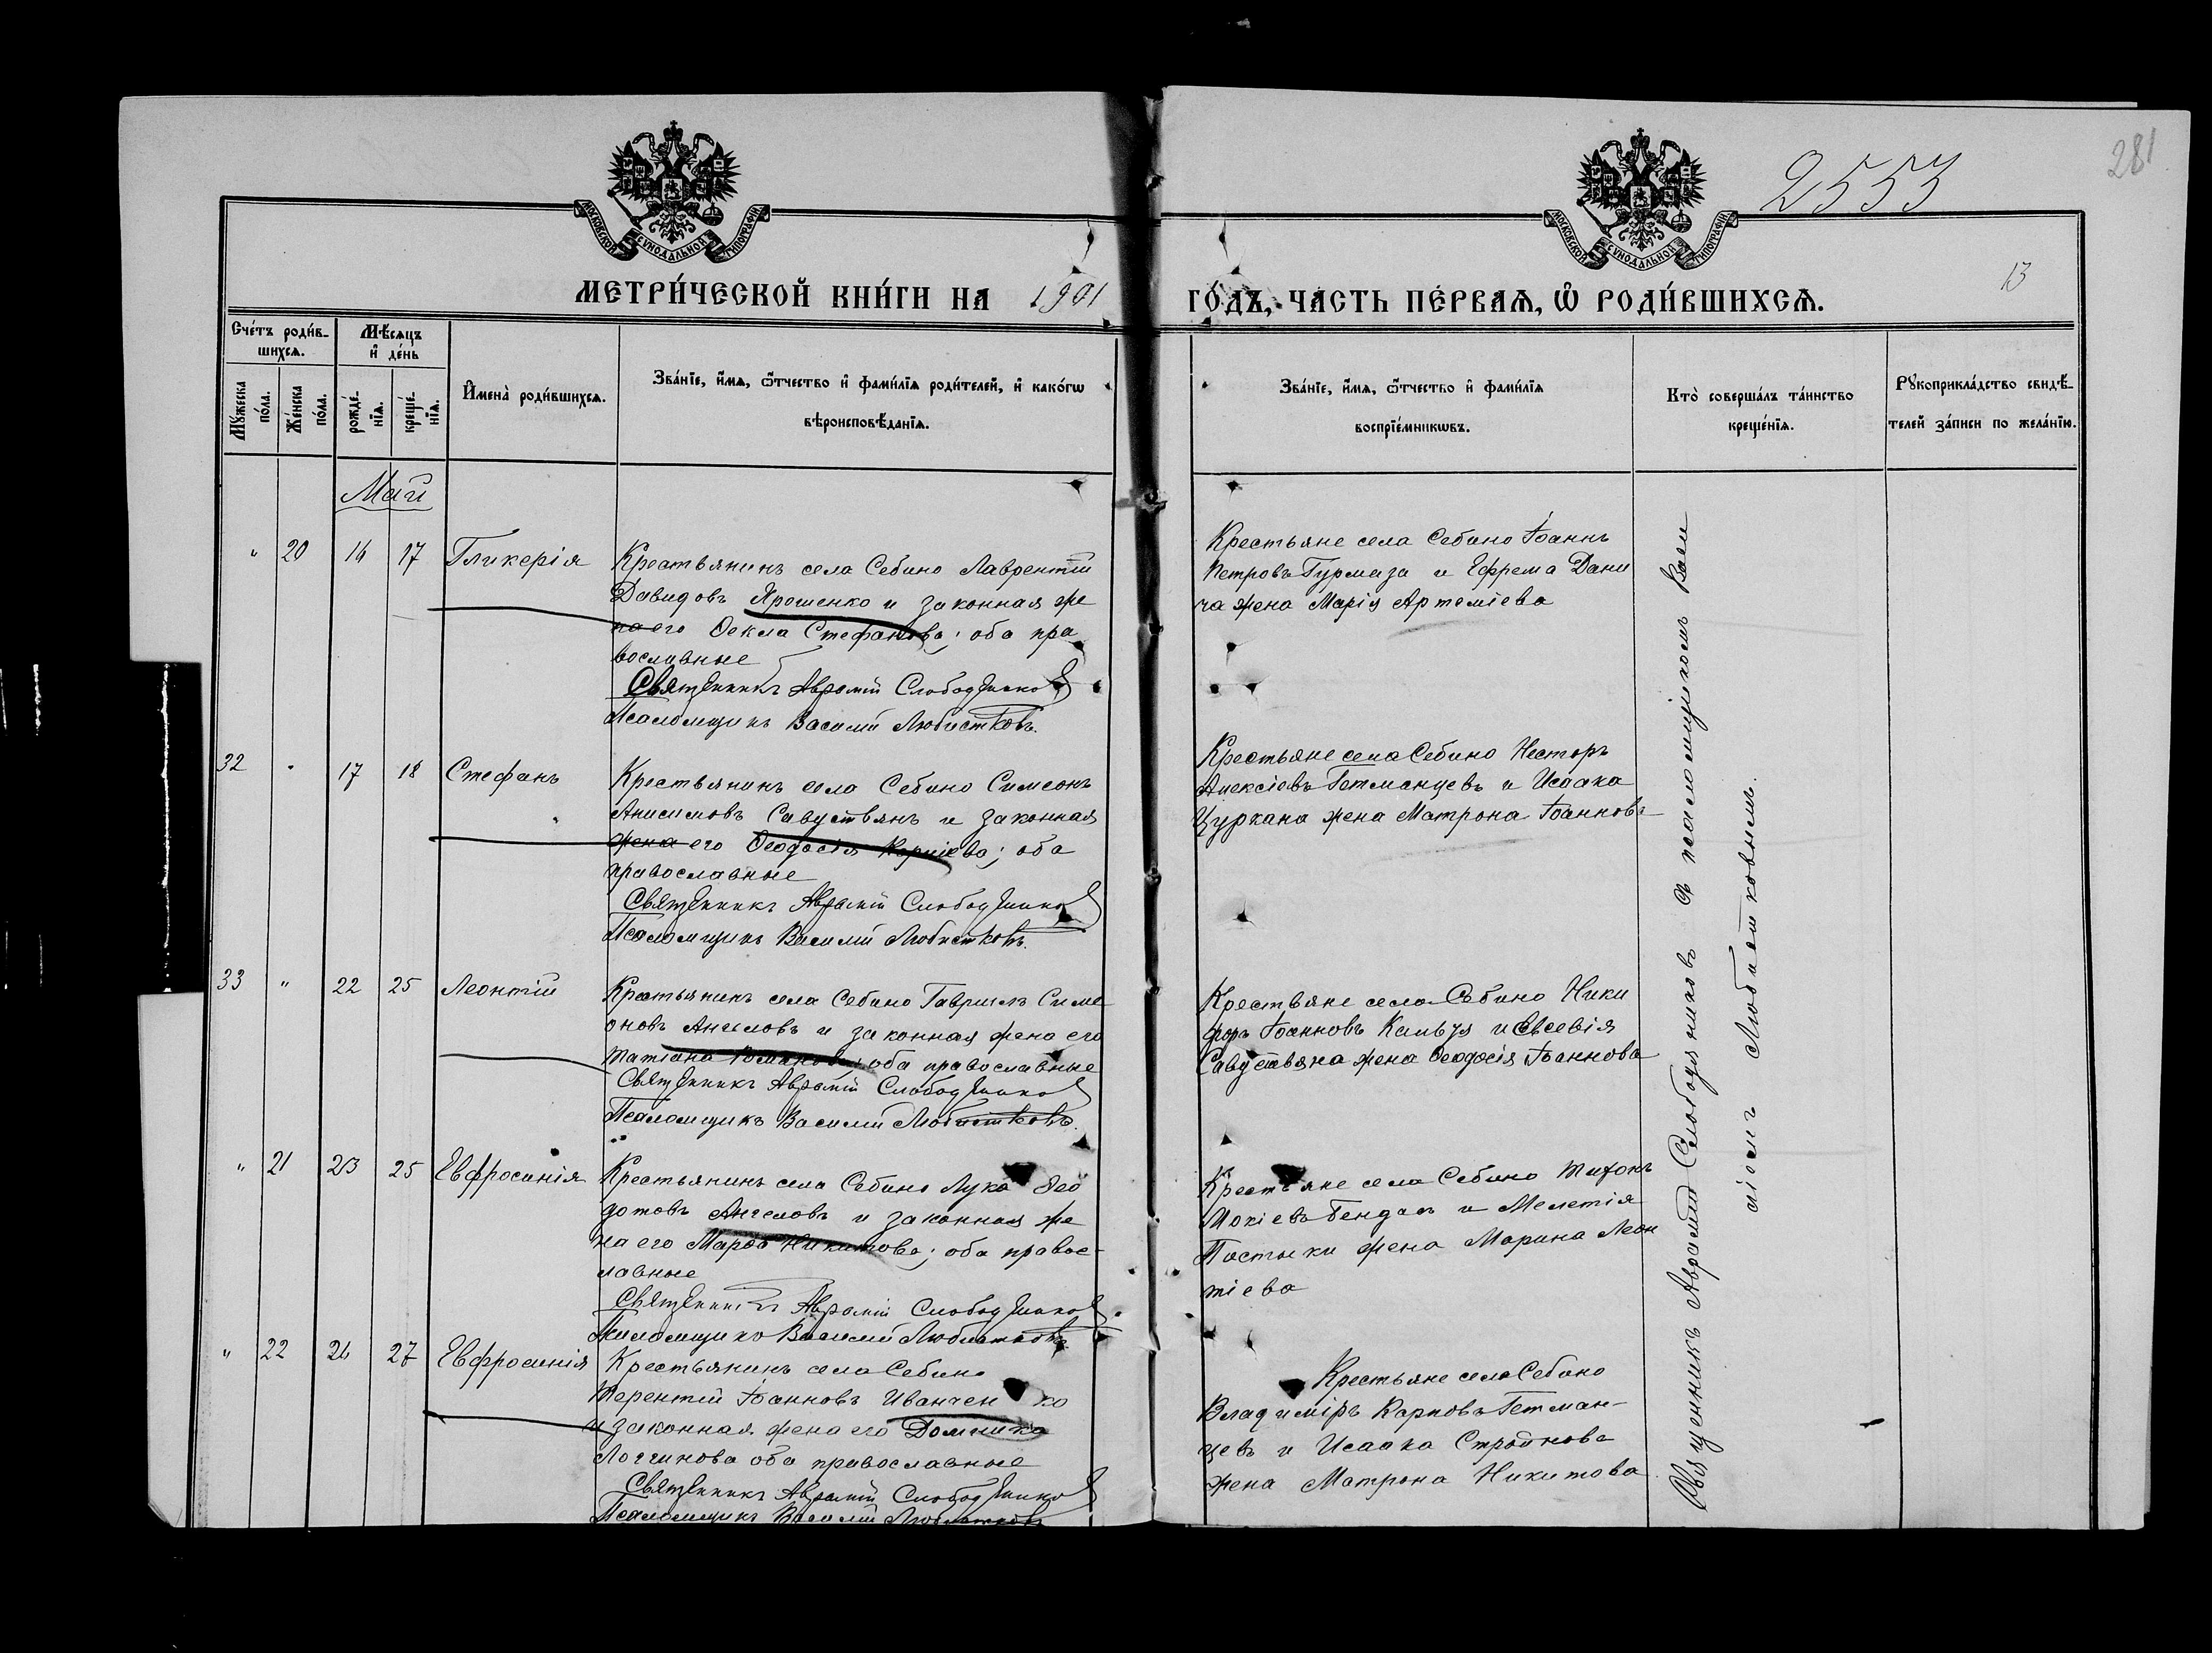 281
2553
13
МОСКОВСКОЙ СѴНОДАЛЬНОЙ ТИПОГРАФІИ
МОСКОВСКОЙ СѴНОДАЛЬНОЙ ТИПОГРАФІИ
МЕТРИ́ЧЕСКОЙ КНИ́ГИ НА 1901 ГО́ДЪ, ЧА́СТЬ ПЕ́РВАЯ, Ѡ҆ РОДИ́ВШИХСѦ.
Сче́тъ роди́в-
шихсѧ.
Мꙋжеска
по́ла.
Же́нска
по́ла.
Мѣ́сѧцъ
и҆ де́нь
рожде́-
нїѧ.
креще́-
нїѧ.
И҆мена̀ роди́вшихсѧ.
Зва́нїе, и҆́мѧ, ѻ҆́тчество и҆ фами́лїѧ роди́телей, и҆ како́гѡ
вѣроисповѣ́данїѧ.
Зва́нїе, и҆́мѧ, ѻ҆́тчество и҆ фами́лїѧ
воспрїе́мникѡвъ.
Кто̀ соверша́лъ та́инство
креще́нїѧ.
Рꙋкоприкла́дство свидѣ́-
телей за́писи по жела́нїю.
Май
" 20 14 17 Гликерія
Крестьянинъ села Себино Лаврентій
Давидовъ Ярошенко и законная же
на его Ѳекла Стефанова; оба пра
вославные
Священникъ Аврамій Слободяников
Псаломщикъ Василій Любистковъ.
Крестьяне села Себино Іоаннъ
Петровъ Гурмаза и Ефрема Дани
ча жена Марія Артеміева
32 " 17 18 Стефанъ
Крестьянинъ села Себино Симеонъ
Анисимовъ Савуствянъ и законная
жена его Ѳеодосія Корніева; оба
православные
Священникъ Аврамій Слободяников
Псаломщикъ Василій Любистковъ.
Крестьяне села Себино Несторъ
Алексіевъ Гетманцевъ и Исаака
Цуркана жена Матрона Іоаннова
33 " 22 25 Леонтій
Крестьянинъ села Себино Гавріилъ Симе
оновъ Ангеловъ и законная жена его
Татіана Романова; оба православные
Священникъ Аврамій Слободяников
Псаломщикъ Василій Любистковъ.
Крестьяне села Себино Ники
форъ Іоанновъ и Евсевія
Савуствяна жена Ѳеодосія Іоаннова
" 21 23 25 Евфросинія
Крестьянинъ села Себино Лука Ѳео
дотовъ Ангеловъ и законная же
на его Марѳа Никитова; оба правос-
лавные
Священникъ Аврамій Слободяников
Псаломщикъ Василій Любистковъ
Крестьяне села Себино Тихонъ
Мокіевъ Бендас и Мелетія
Постыки жена Марина Леон
тіева
" 22 24 27 Евфросинія
Крестьянинъ села Себино
Терентій Іоанновъ Иванченко
и законная жена его Домника
Логгинова оба православные
Священникъ Аврамій Слободяников
Псаломщикъ Василій Любистковъ
Крестьяне села Себино
Владиміръ Карповъ Гетман-
цевъ и Исаака Стройнова
жена Матрона Никитова
Священникъ Аврамій Слободяниковъ съ псаломщикомъ Васи
ліемъ Любистковымъ.